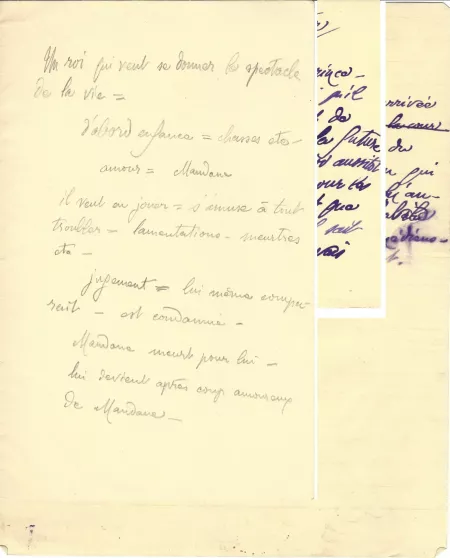 Un roi qui veut se donner le spectacle
de la vie =
d'abord enfance = chasses etc-
amour = Mandane
il veut en jouer = s'amuse à tout
troubler = lamentations - meurtres
etc -
jugement = lui même compa-
rait - est condamné -
Mandane meurt pour lui -
lui devient après coup amoureux
de Mandane -
t de
la future
que
rrivée
la cour
du
qui